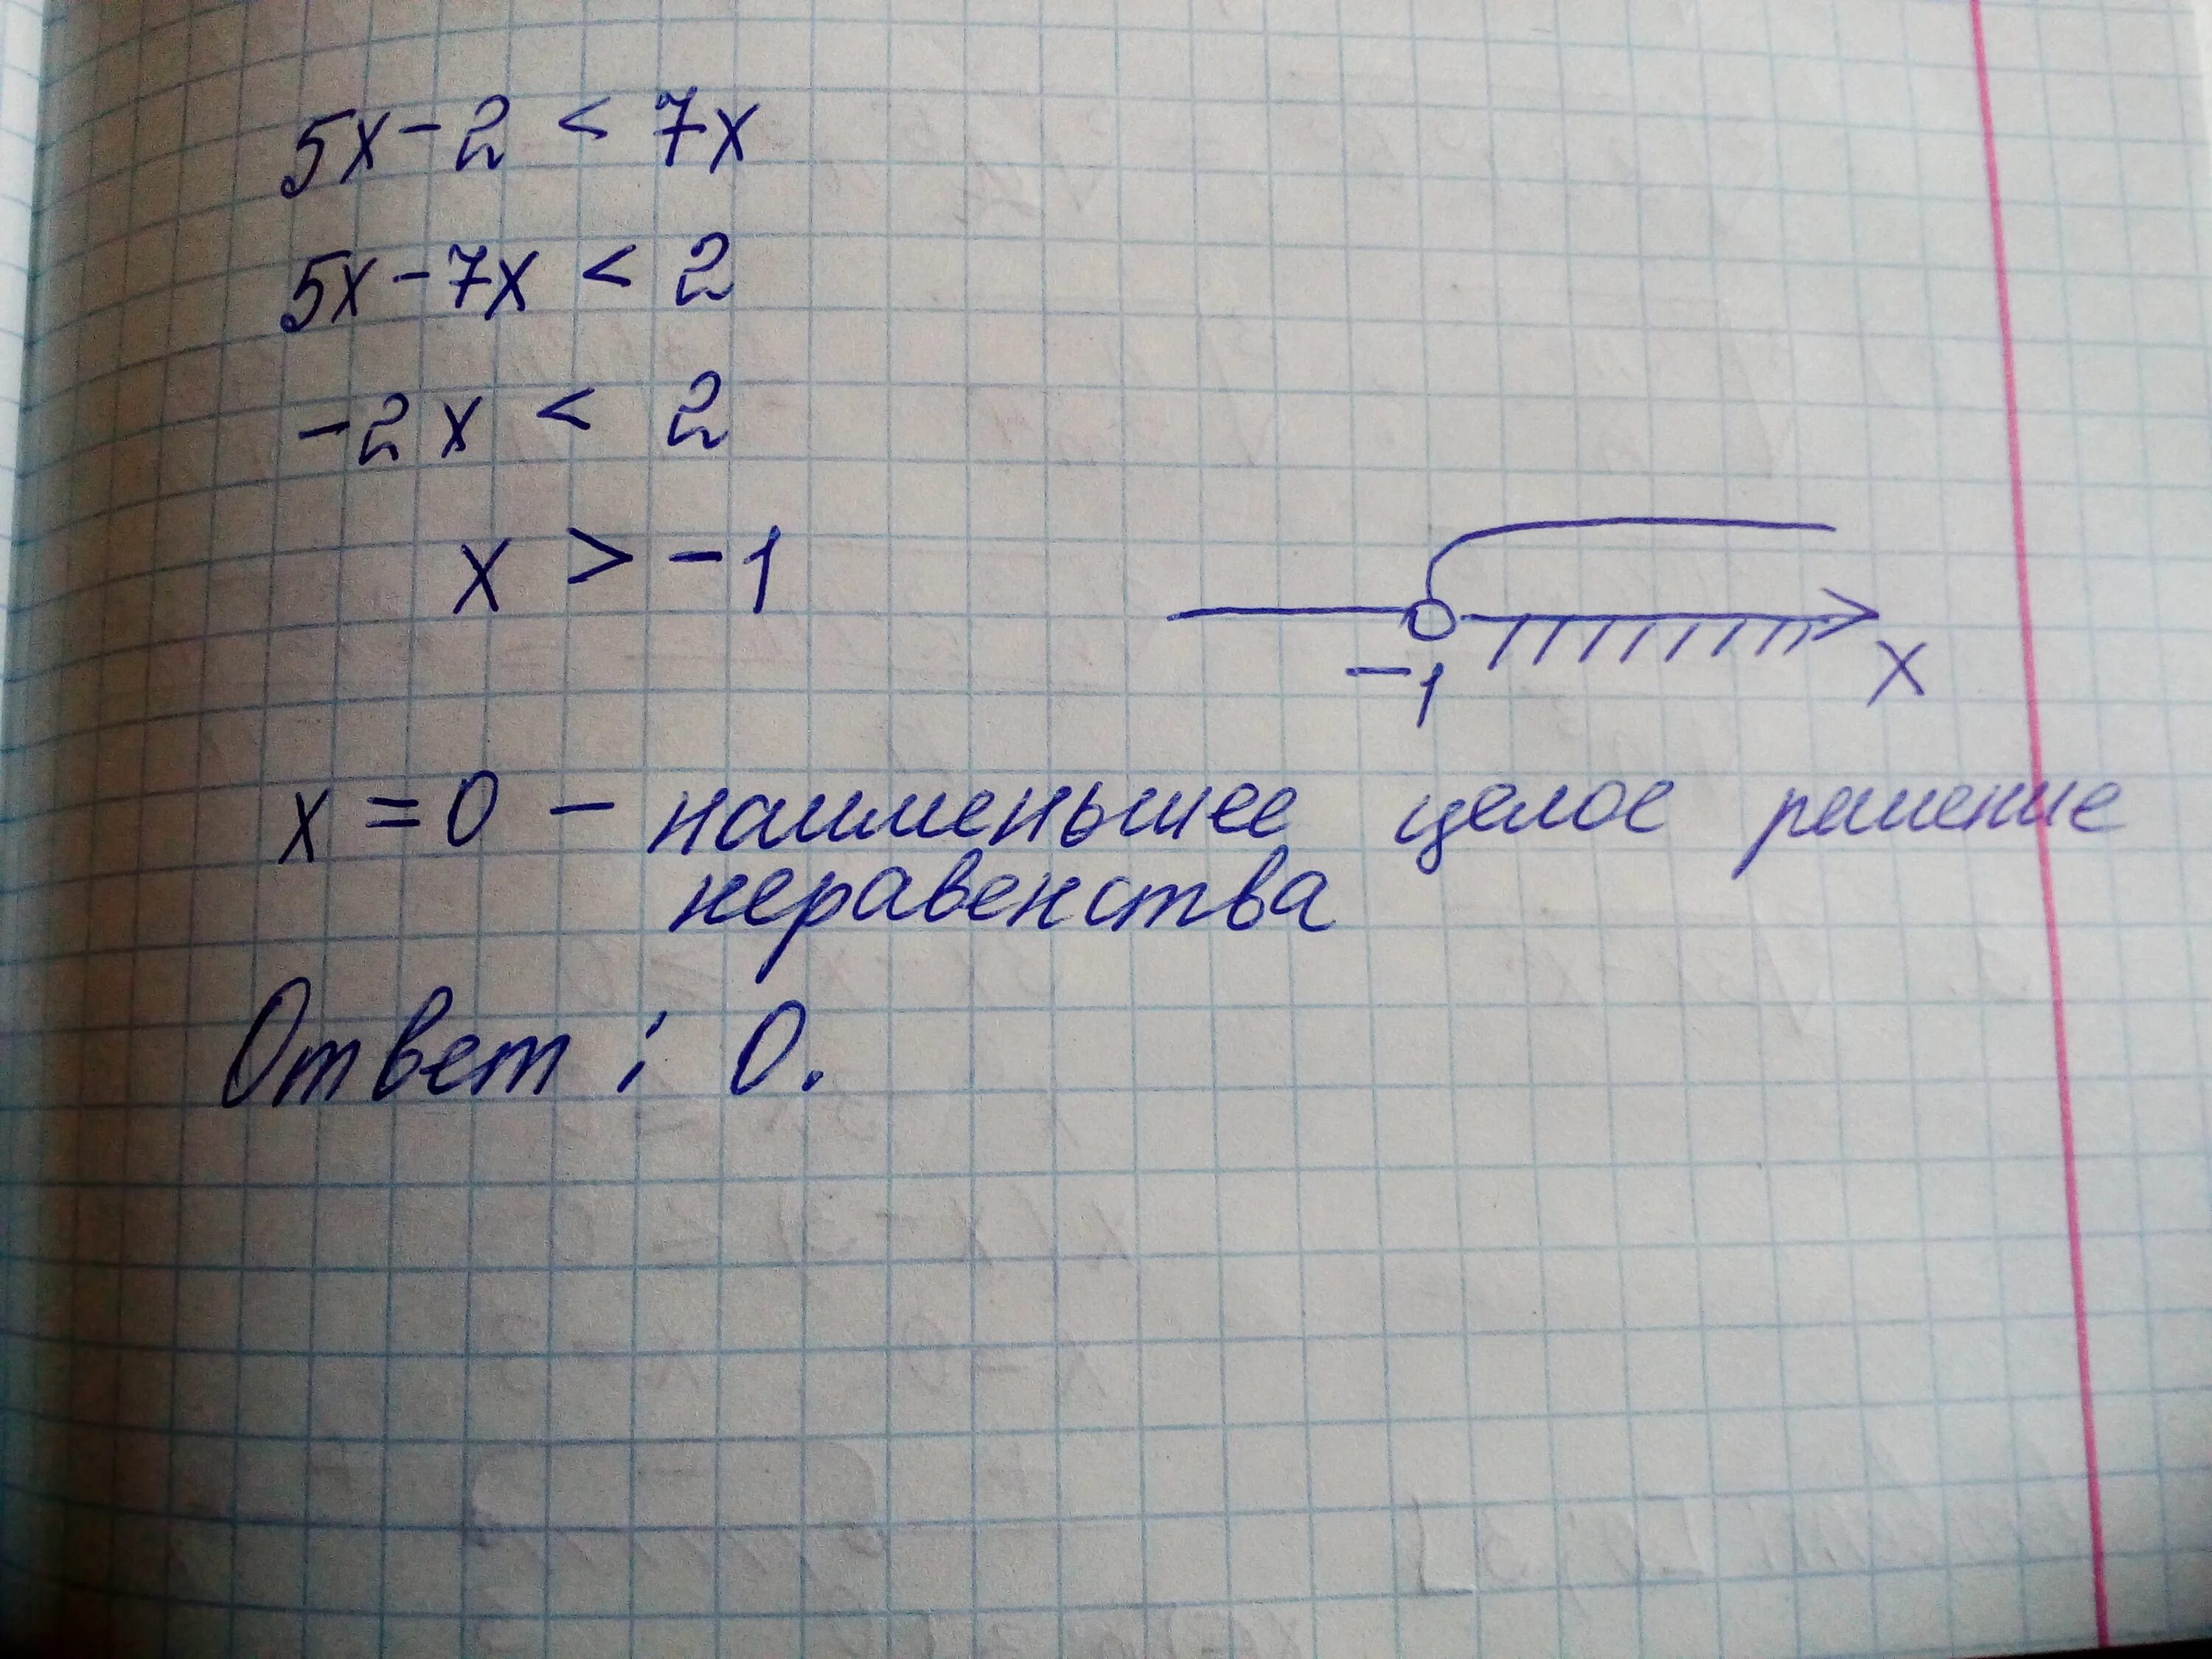 5x-2 < 7x
5x-7x < 2
-2x < 2
x > -1
-1
x
x = 0 - наименьшее целое решение
неравенства
Ответ: 0.